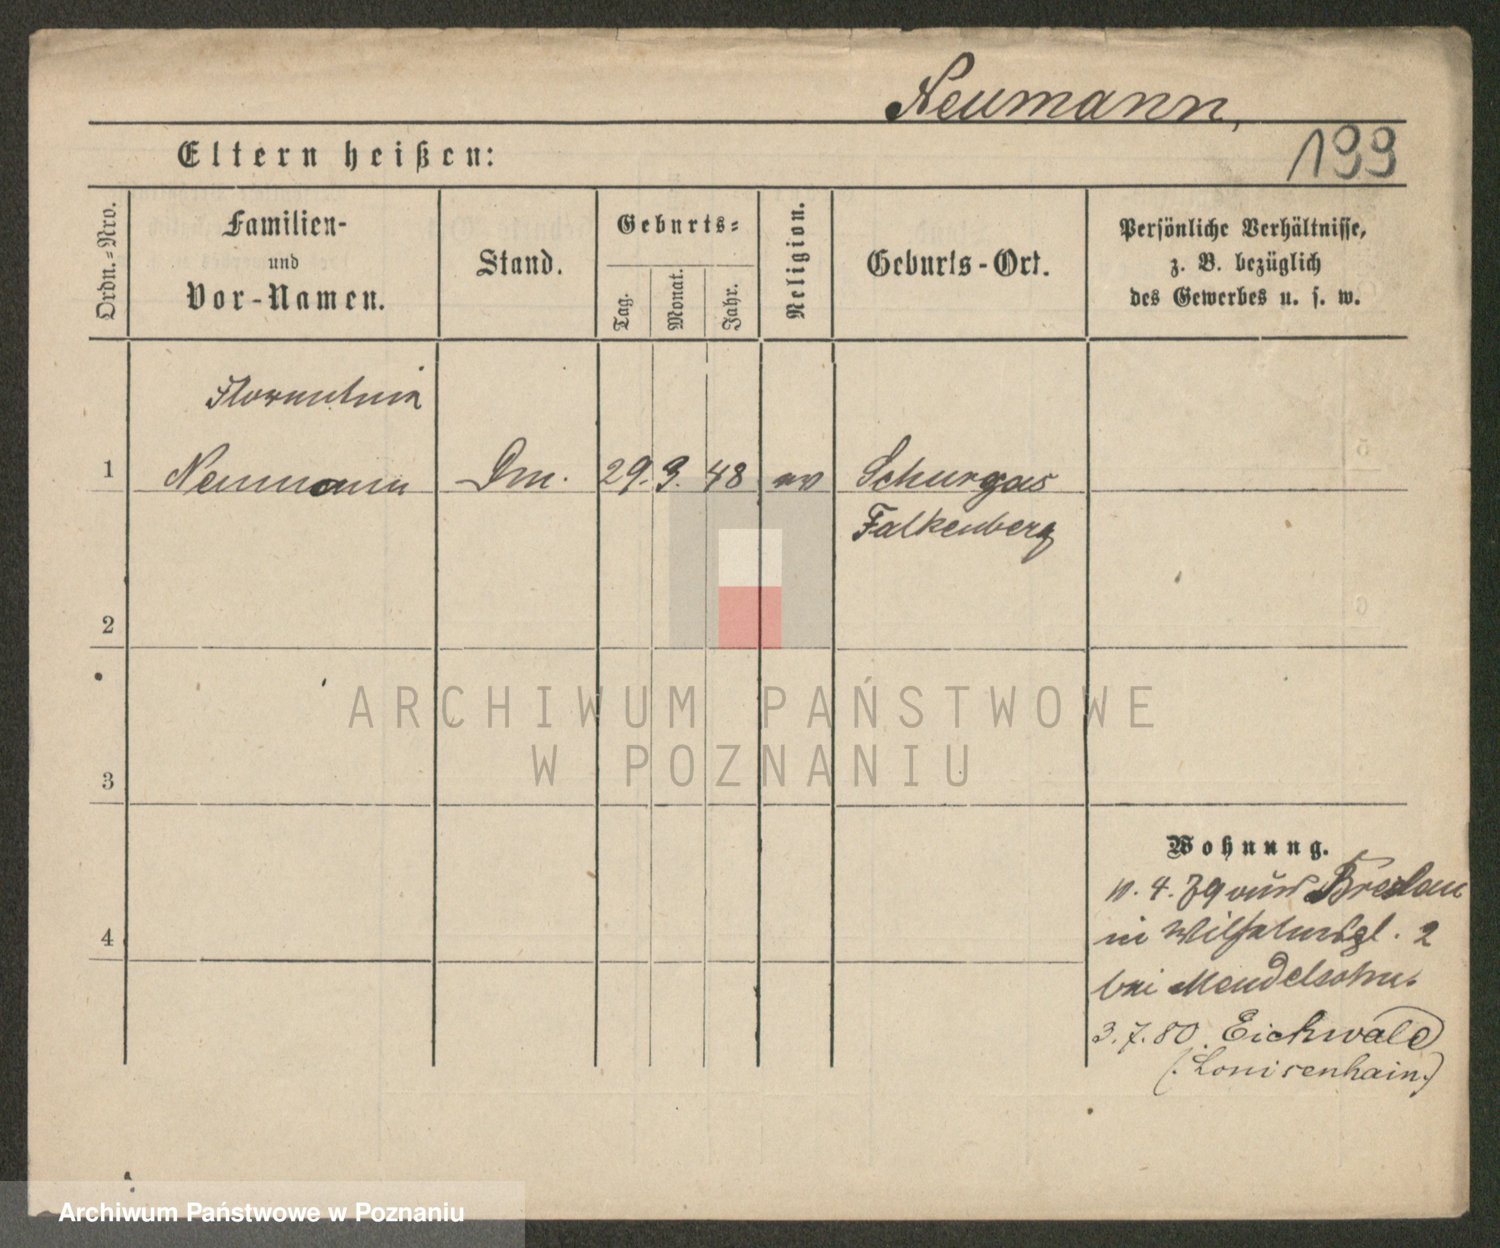 Neumann,
199
Eltern heißen:
Ordn.-Nro.
Familien-
und
Vor-Namen.
Stand.
Geburts-
Tag.
Monat.
Jahr.
Religion.
Geburts-Ort.
Persönliche Verhältnisse,
z. B. bezüglich
des Gewerbes u. s. w.
Florentina
1 Neumann Dm. 29. 9. 48 ev Schurgas
Falkenberg
2
3
4
ARCHIWUM PAŃSTWOWE
W POZNANIU
Wohnung.
4. 79 aus Breslau
in Wilhelmspl. 2
bei Mendelsohn.
3. 7. 80. Eichwald
(: Louisenhain.)
Archiwum Państwowe w Poznaniu